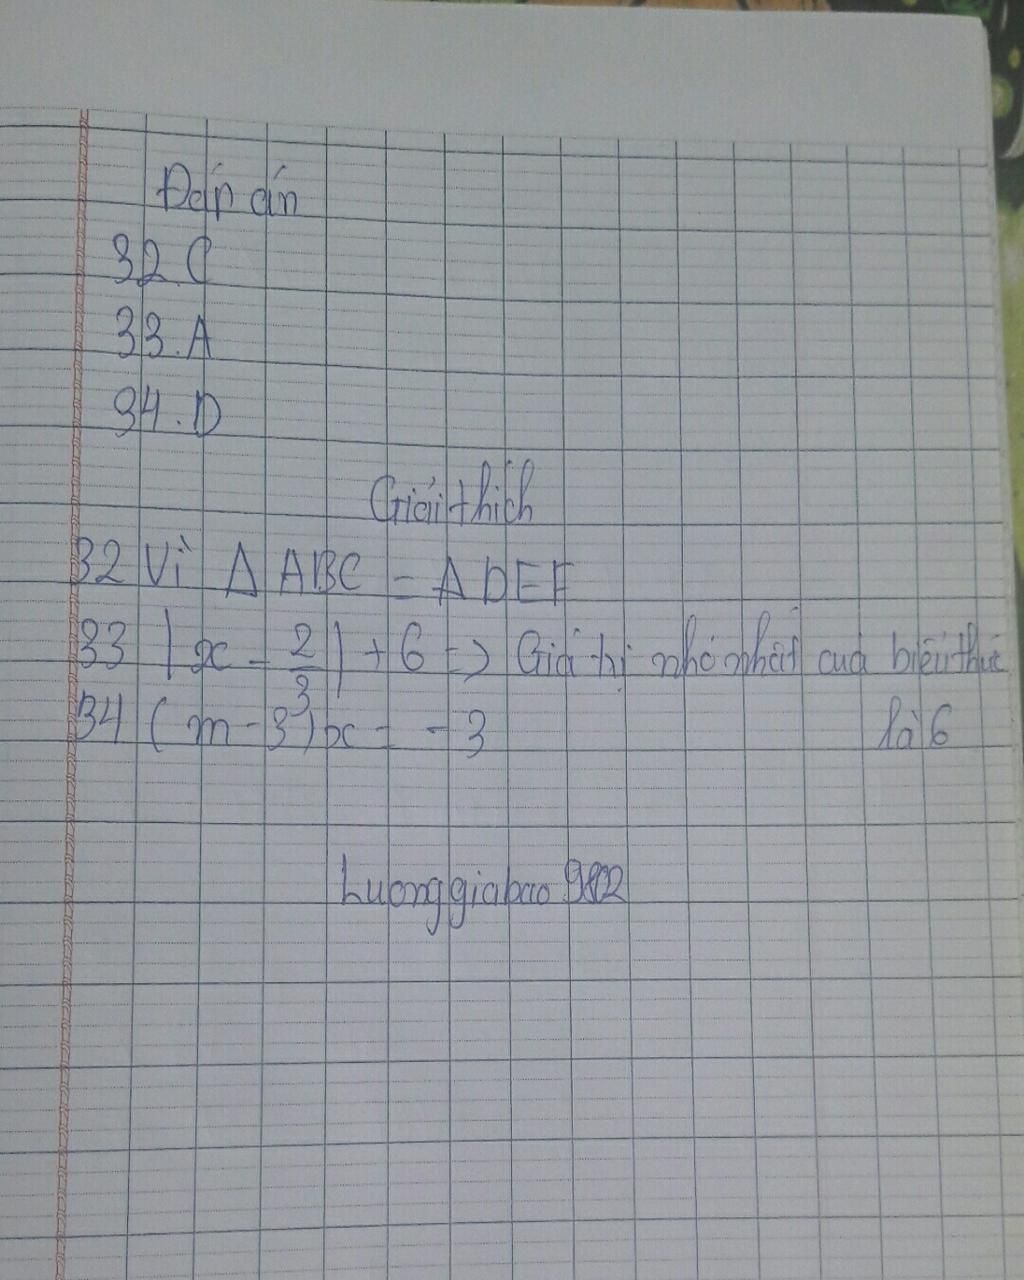 Đáp án
32.C
33.A
34.D
Giải thích
32 Vì Δ ABC = Δ DEF
33 |x - 2/3| + 6 => Giá trị nhỏ nhất của biểu thức
là 6
34 (m - 3)x = -3
Luonggiabao9802